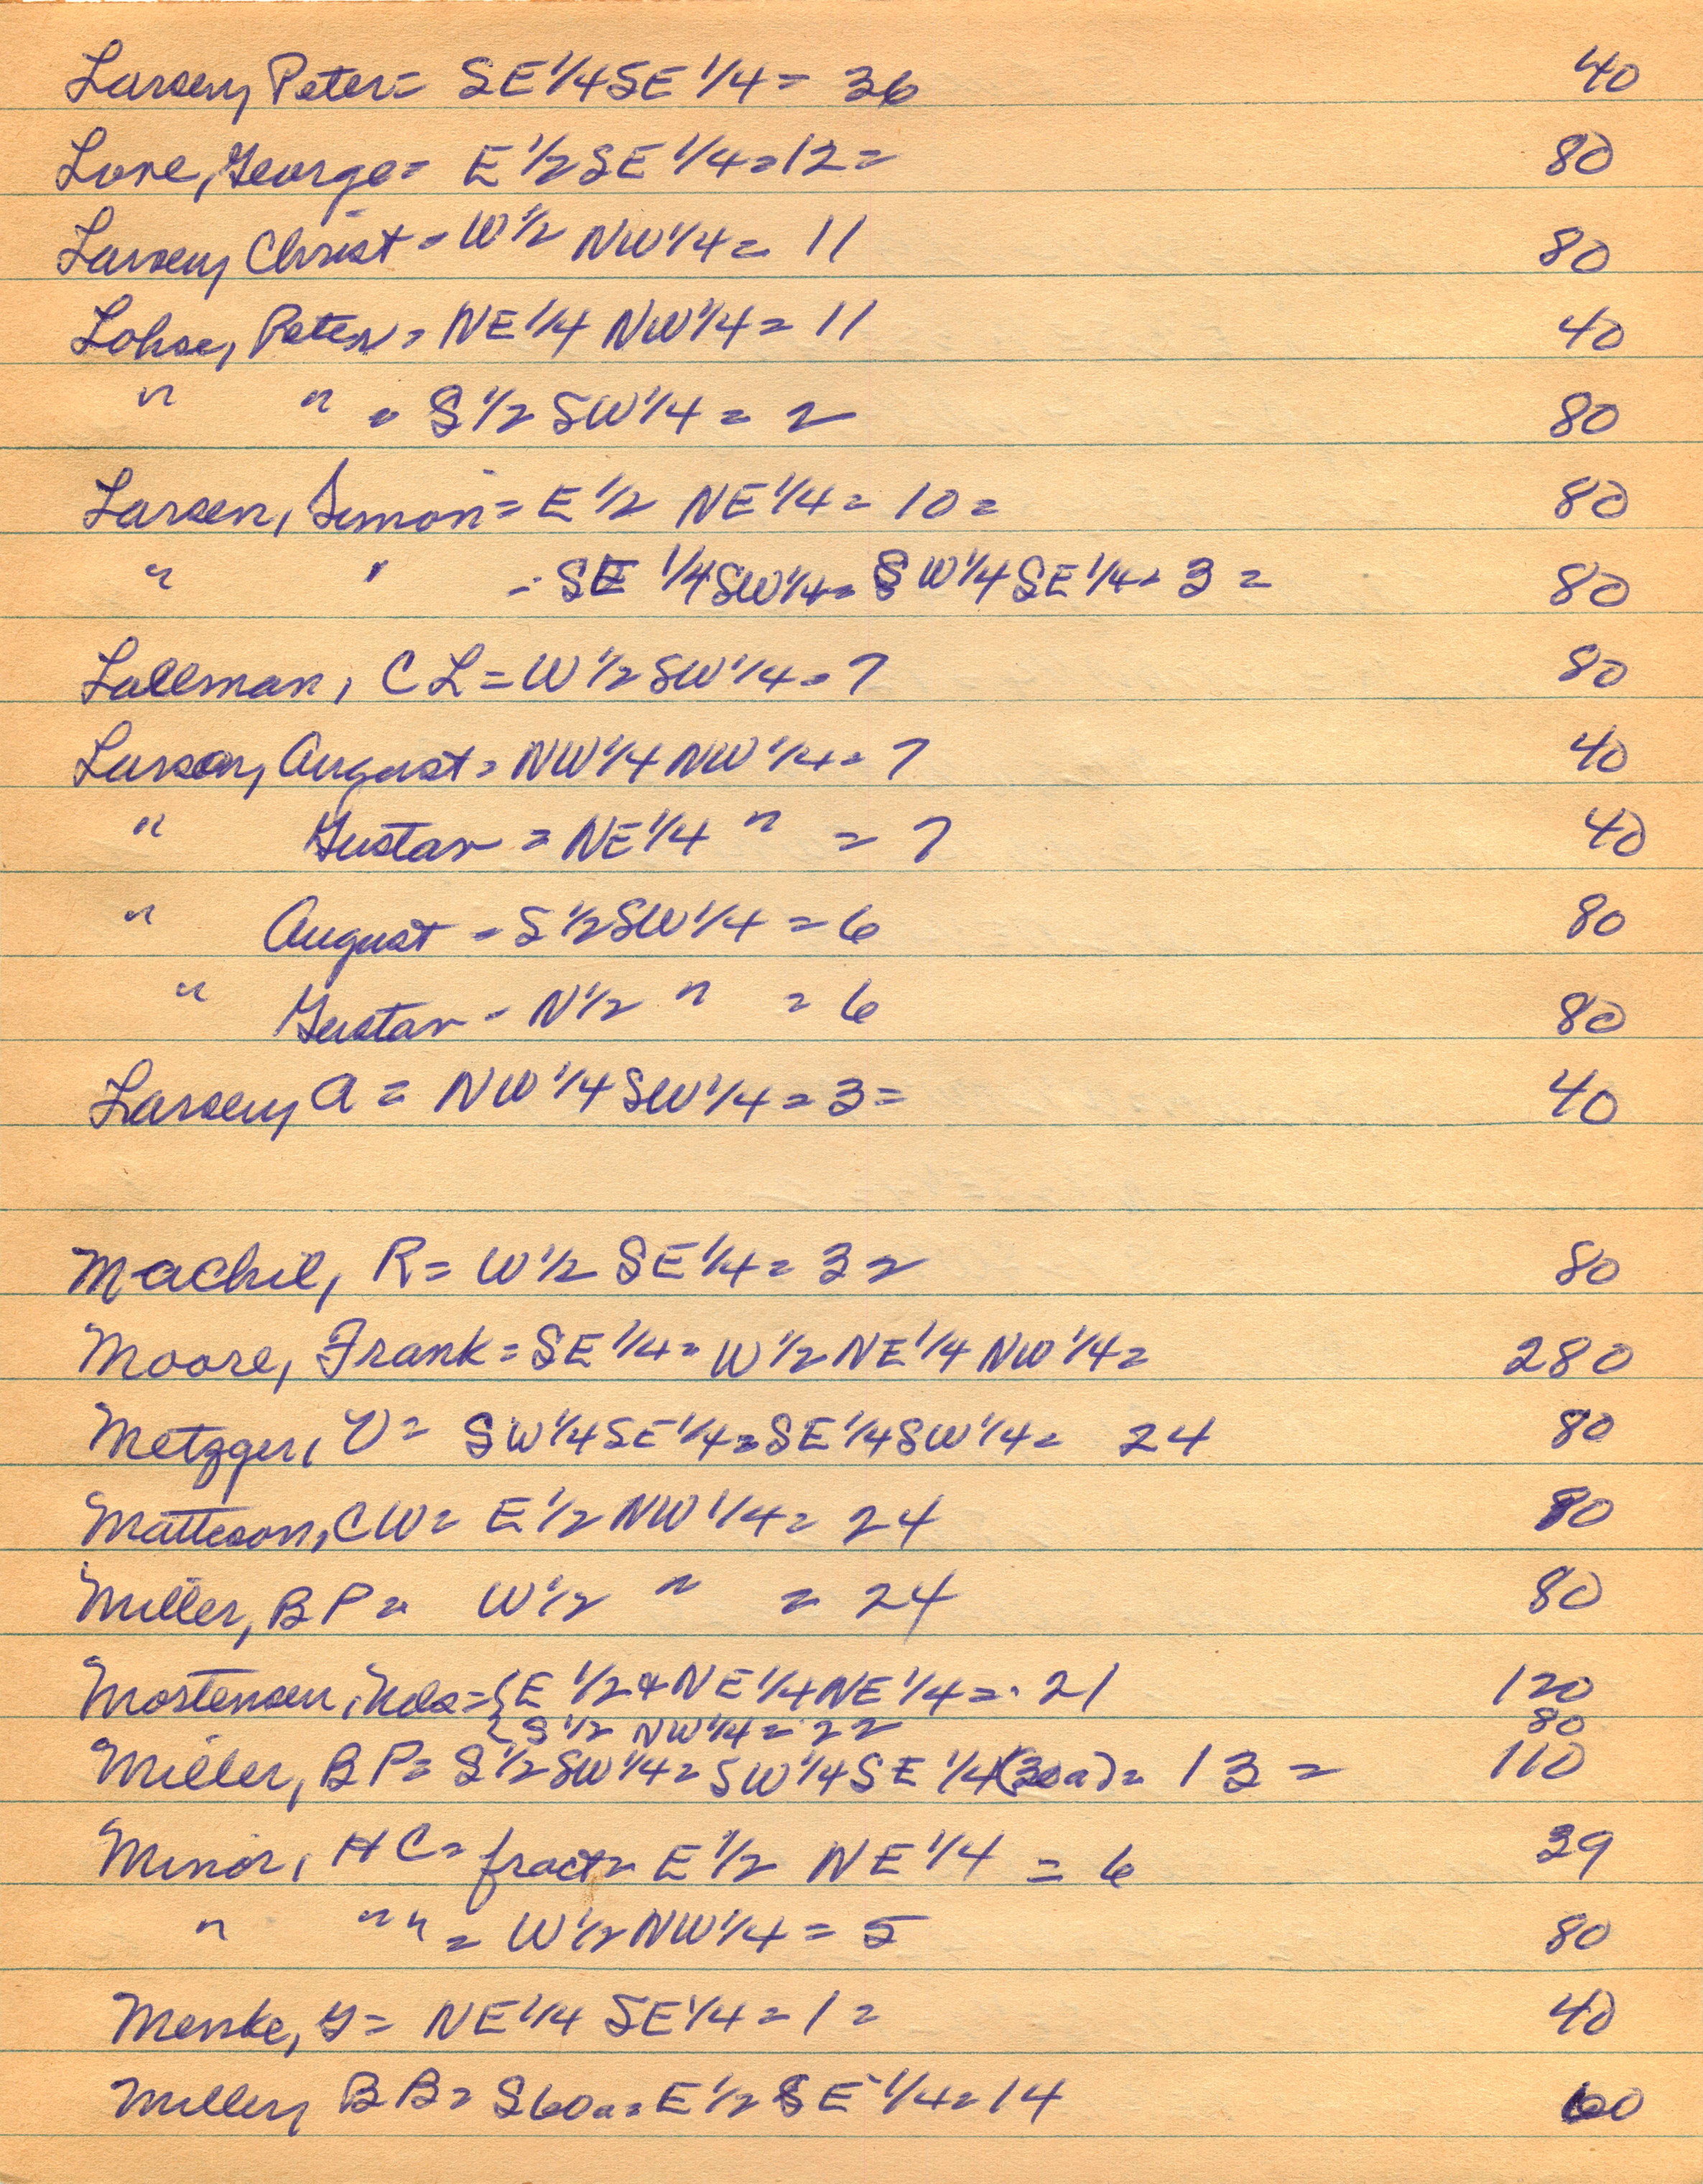 Larsen, Peter= SE 1/4 SE 1/4 = 36 40
Love, George= E 1/2 SE 1/4 = 12 = 80
Larsen, Christ = W 1/2 NW 1/4 = 11 80
Lohse, Peter = NE 1/4 NW 1/4 = 11 40
" " = S 1/2 SW 1/4 = 2 80
Larsen, Simon = E 1/2 NE 1/4 = 10 = 80
" " = SE 1/4 SW 1/4 = SW 1/4 SE 1/4 = 3 = 80
Lallman, C L = W 1/2 SW 1/4 = 7 80
Larson, August = NW 1/4 NW 1/4 = 7 40
" Gustav = NE 1/4 " = 7 40
" August = S 1/2 SW 1/4 = 6 80
" Gustav - N 1/2 " = 6 80
Larsen, A = NW 1/4 SW 1/4 = 3 = 40
Machil, R= W 1/2 SE 1/4 = 32 80
Moore, Frank = SE 1/4 = W 1/2 NE 1/4 NW 1/4 = 280
Metzger, V= SW 1/4 SE 1/4 = SE 1/4 SW 1/4 = 24 80
Matteson, C W= E 1/2 NW 1/4 = 24 80
Miller, B P = W 1/2 " = 24 80
Mortensen, = { E 1/2 + NE 1/4 NE 1/4 = 21 120
{ S 1/2 NW 1/4 = 22 80
Miller, B P= S 1/2 SW 1/4 = SW 1/4 SE 1/4 (30a) = 13 = 110
Minor, H C= fract= E 1/2 NE 1/4 = 6 39
" " " = W 1/2 NW 1/4 = 5 80
Menke, G= NE 1/4 SE 1/4 = 1 = 40
Miller, B B = S60a = E 1/2 SE 1/4 = 14 60